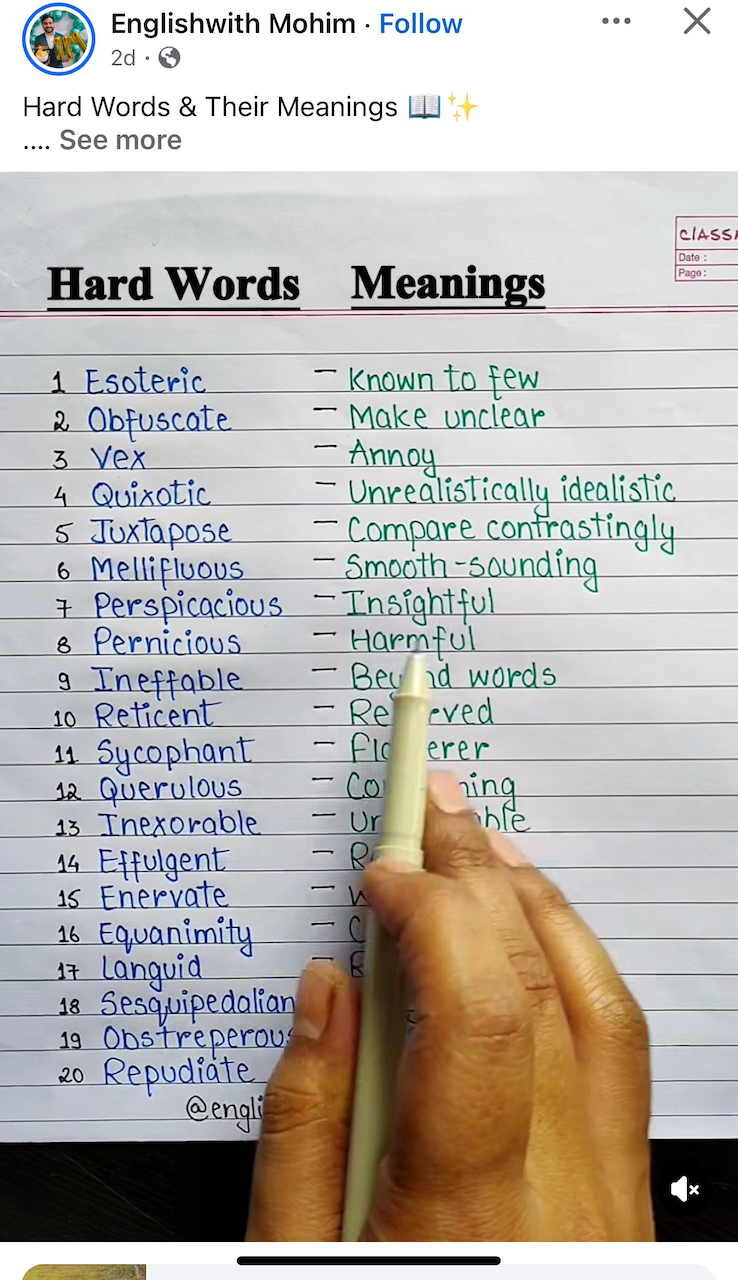 Englishwith Mohim · Follow
2d ·
Hard Words & Their Meanings 📖✨
.... See more
Date :
Page:
Hard Words Meanings
1 Esoteric – Known to few
2 Obfuscate – Make unclear
3 Vex – Annoy
4 Quixotic – Unrealistically idealistic
5 Juxtapose – Compare contrastingly
6 Mellifluous – Smooth-sounding
7 Perspicacious – Insightful
8 Pernicious – Harmful
9 Ineffable – words
10 Reticent –
11 Sycophant –
12 Querulous –
13 Inexorable –
14 Effulgent –
15 Enervate –
16 Equanimity –
17 Languid –
18 Sesquipedalian
19
20 Repudiate